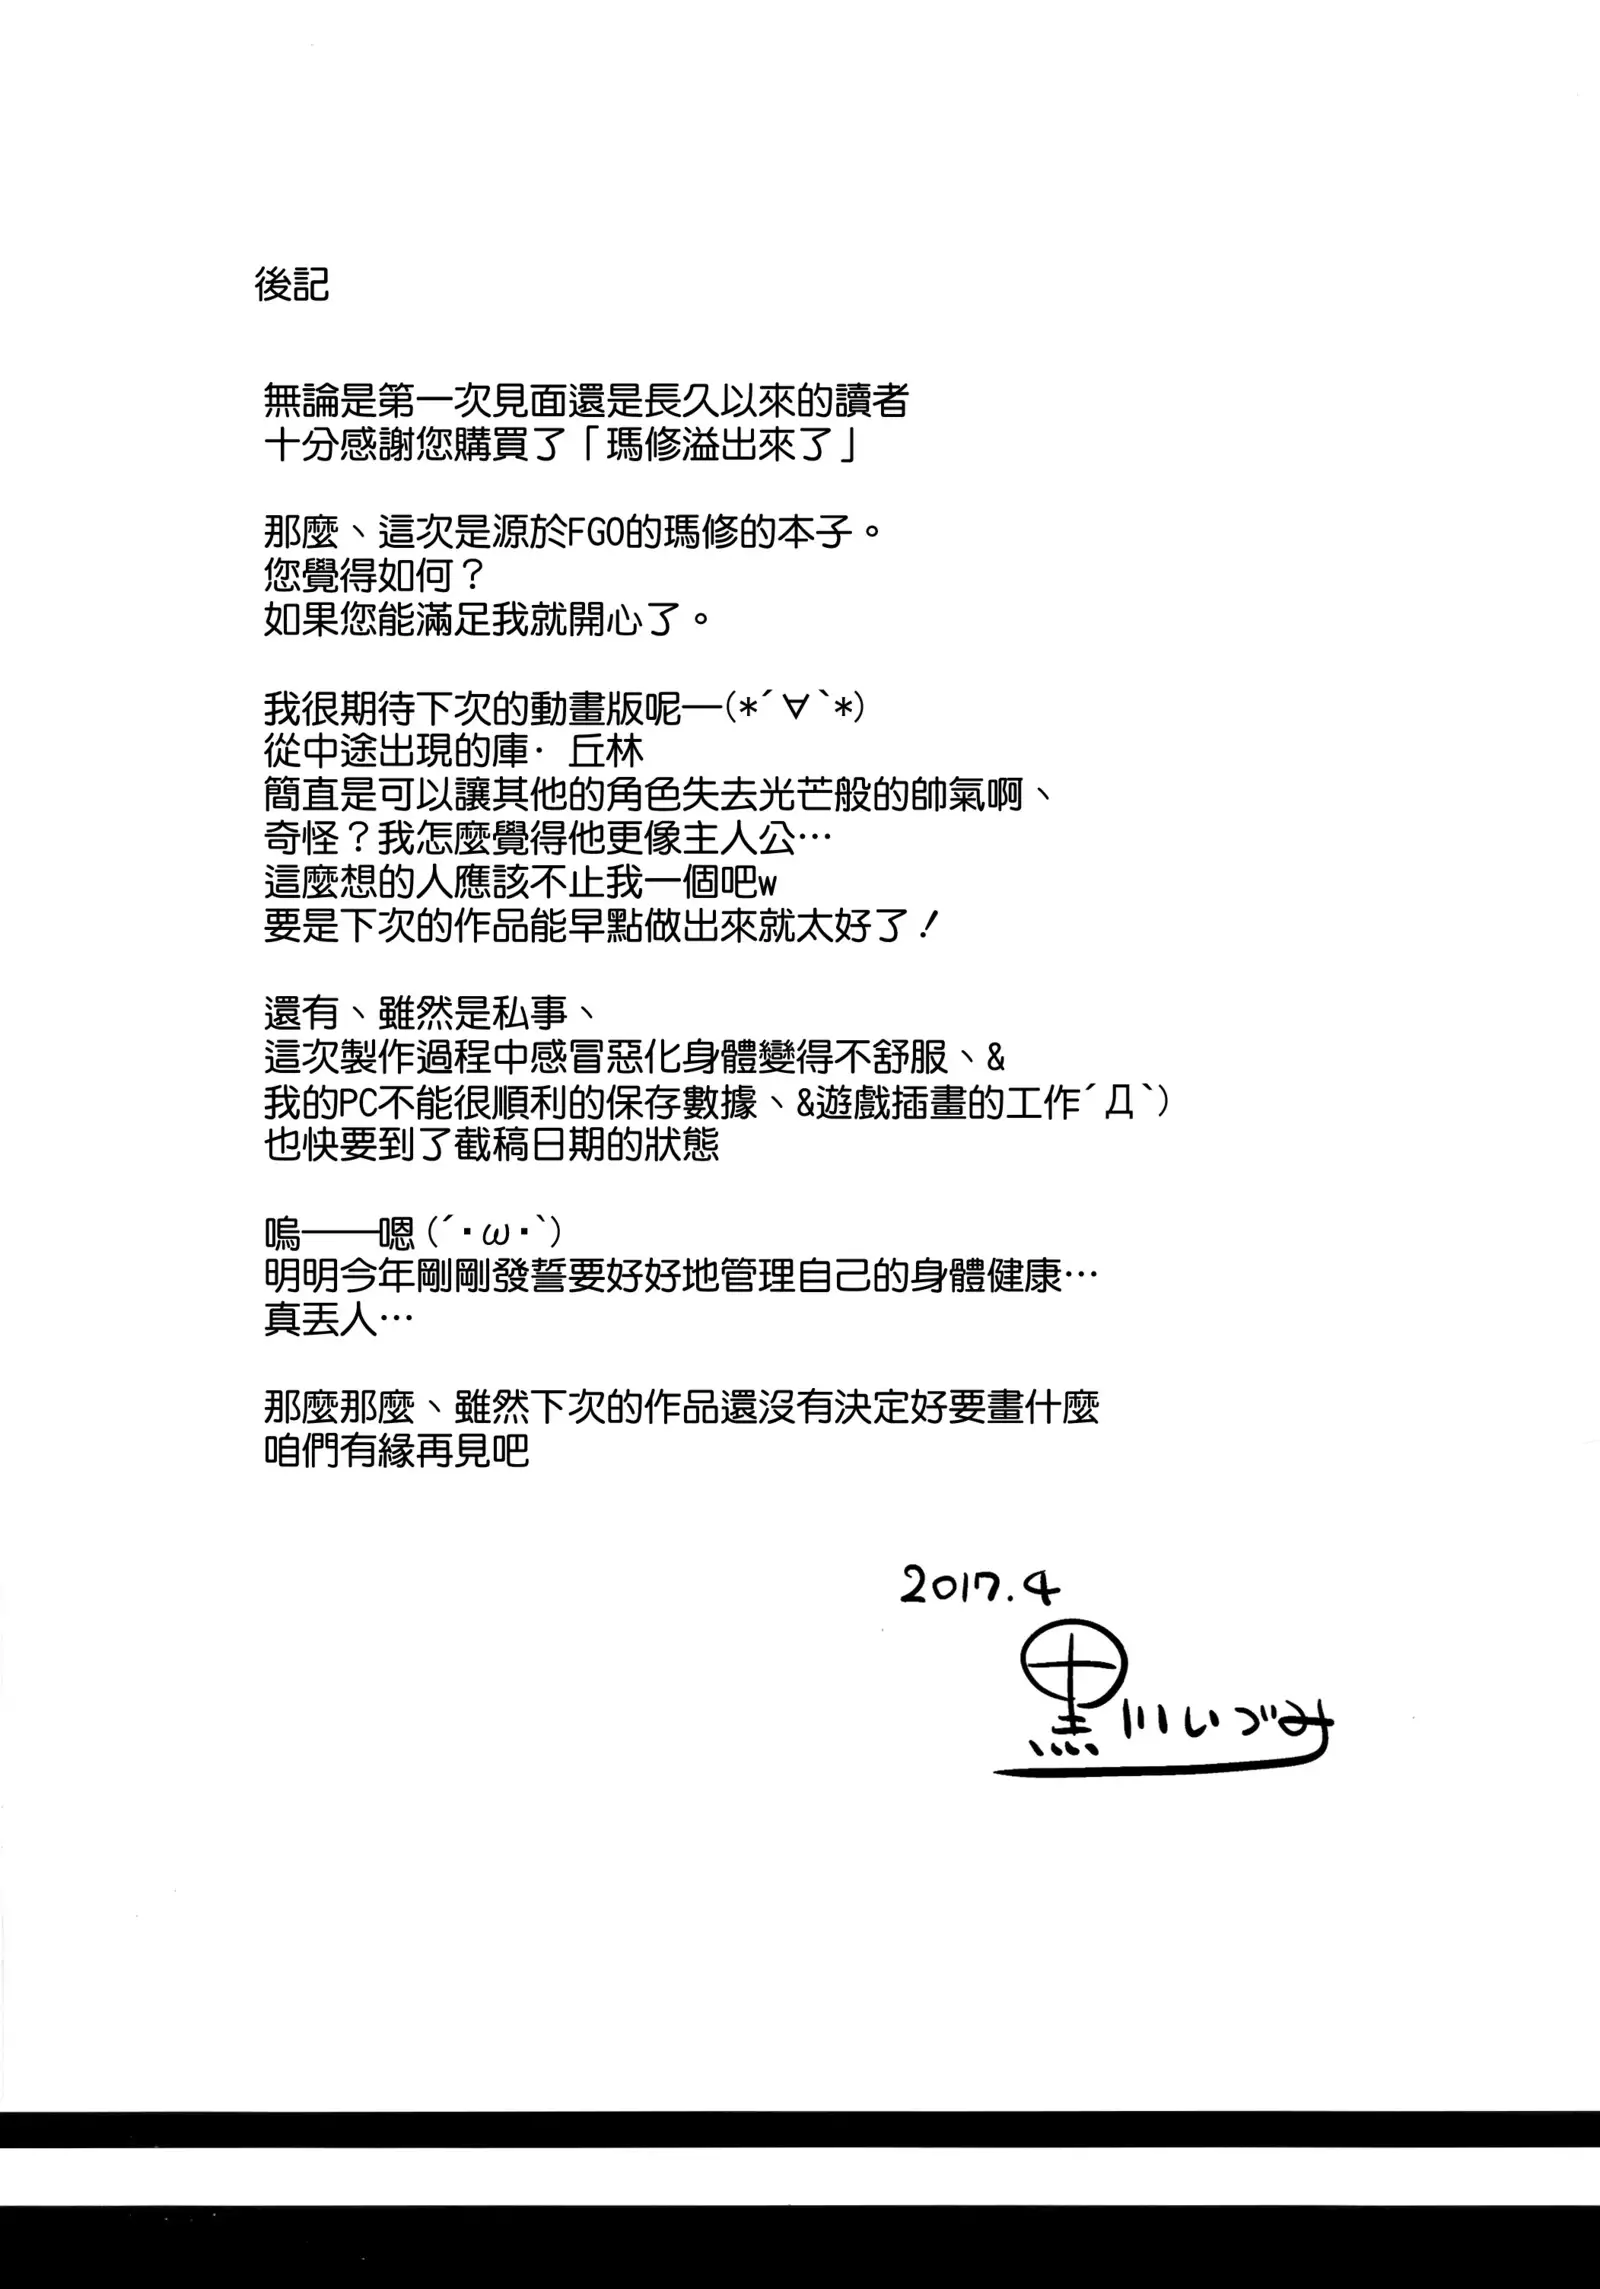 後記
無論是第一次見面還是長久以來的讀者
十分感謝您購買了「瑪修溢出來了」
那麼、這次是源於FGO的瑪修的本子。
您覺得如何？
如果您能滿足我就開心了。
我很期待下次的動畫版呢—(*´∀`*)
從中途出現的庫· 丘林
簡直是可以讓其他的角色失去光芒般的帥氣啊、
奇怪？我怎麼覺得他更像主人公…
這麼想的人應該不止我一個吧w
要是下次的作品能早點做出來就太好了！
還有、雖然是私事、
這次製作過程中感冒惡化身體變得不舒服、&
我的PC不能很順利的保存數據、&遊戲插畫的工作´Д`)
也快要到了截稿日期的狀態
嗚——嗯(´·ω·`)
明明今年剛剛發誓要好好地管理自己的身體健康…
真丟人…
那麼那麼、雖然下次的作品還沒有決定好要畫什麼
咱們有緣再見吧
2017.4
黒川いづみ